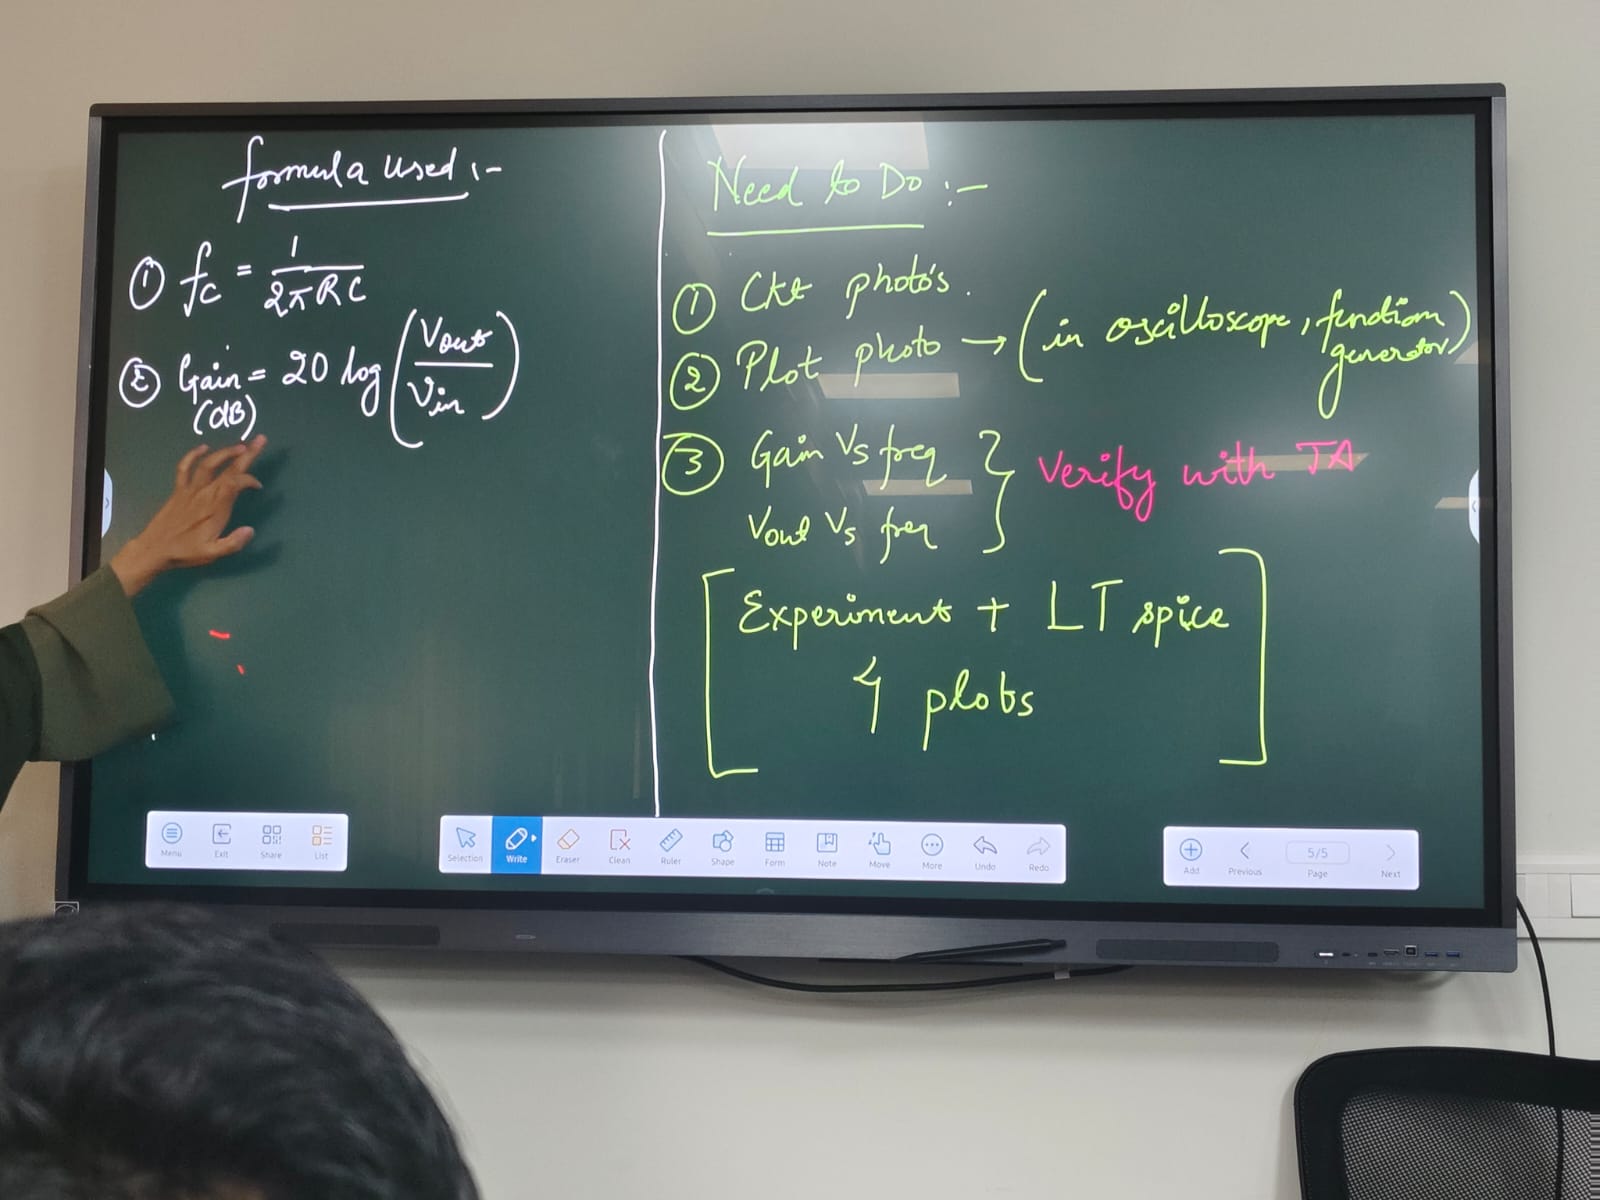 formula used :-
① fc = 1/2πRC
② Gain = 20 log (Vout/Vin)
(dB)
Need to Do :-
① Ckt photo's.
② Plot photo → (in oscilloscope, function generator)
③ Gain Vs freq } Verify with TA
Vout Vs freq
[Experiment + LT spice
4 plots]
Menu Exit Share List
Selection Write Eraser Clean Ruler Shape Form Note Move More Undo Redo
Add Previous 5/5 Page Next